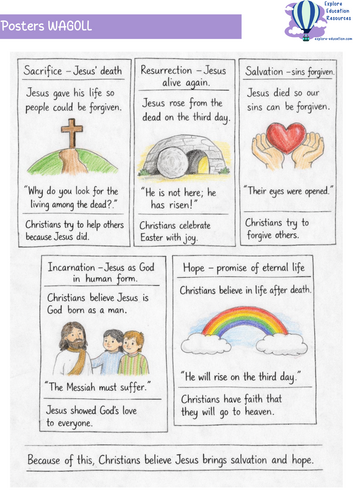 Posters WAGOLL
Explore
Education
Resources
explore-education.com
Sacrifice – Jesus' death
Jesus gave his life so
people could be forgiven.
"Why do you look for the
living among the dead?."
Christians try to help others
because Jesus did.
Resurrection – Jesus
alive again.
Jesus rose from the
dead on the third day.
"He is not here; he
has risen!"
Christians celebrate
Easter with joy.
Salvation – sins forgiven.
Jesus died so our
sins can be forgiven.
"Their eyes were opened."
Christians try to
forgive others.
Incarnation – Jesus as God
in human form.
Christians believe Jesus is
God born as a man.
"The Messiah must suffer."
Jesus showed God's love
to everyone.
Hope – promise of eternal life
Christians believe in life after death.
"He will rise on the third day."
Christians have faith that
they will go to heaven.
Because of this, Christians believe Jesus brings salvation and hope.